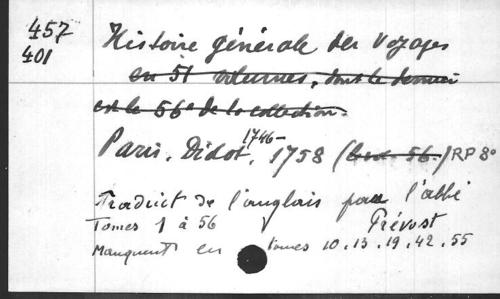 457
401
Histoire générale des Voyages
en 51 volumes, dont le dernier
est le 56e de la collection.
Paris. Didot, 1746-1758 ( 56.) RP 8°
Traduct de l'anglais par l'abbé Prévost
Tomes 1 à 56
Manquent en tomes 10.13.19.42.55